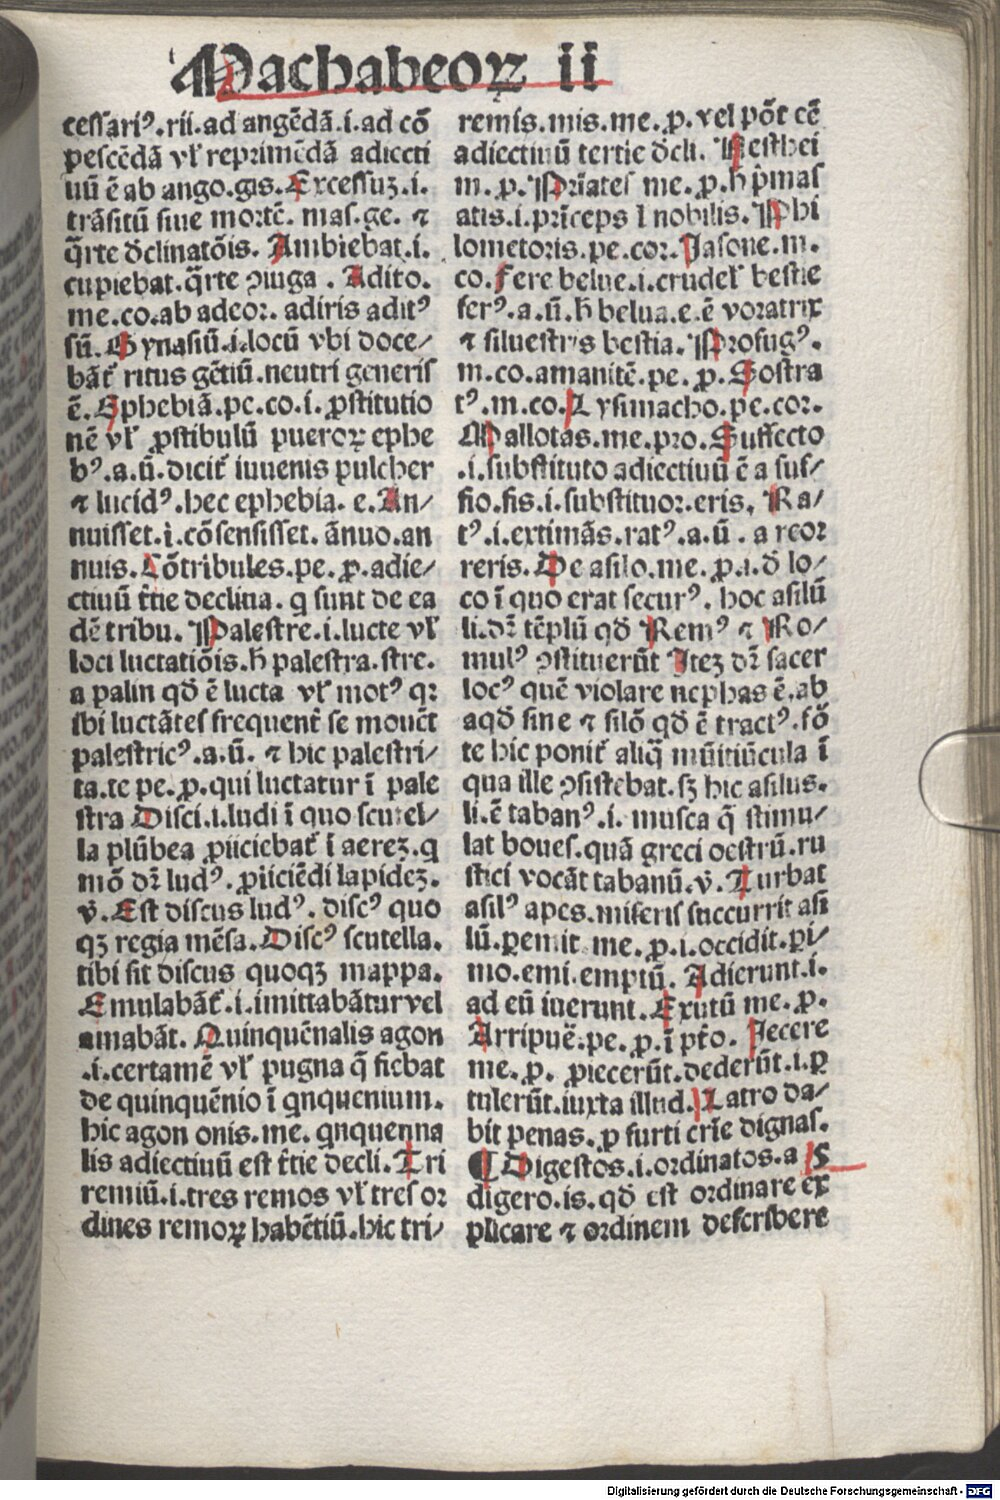 Machabeoꝝ ii
cessariꝰ.rii.ad angēdā.i.ad cō
pescēdā vl̛ reprimēdā adiecti
uū ē ab ango.gis.Excessuʒ.i.
trāsitū siue mortē. mas.ge. ⁊
q̄rte dclinatōis. Ambiebat.i.
cupiebat.q̄rte ꝯiuga . Adito.
me.co.ab adeor. adiris aditꝰ
sū.Gynasiū.i.locū vbi doce/
bāt̛ ritus gētiū.neutri generis
ē.Ephebiā.pe.co.i. ꝓstitutio
nē vl̛ ꝓstibulū pueroꝝ ephe
bꝰ.a.ū.dicit̛ iuuenis pulcher
⁊ lucidꝰ.hec ephebia. e.An/
nuisset.i.cōsensisset.ānuo.an
nuis.Cōtribules.pe.ꝓ.adie/
ctiuū t̄tie declina. q sunt de ea
dē tribu. Palestre.i.lucte vl̛
loci luctatiōis.h̄ palestra.stre.
a palin qd̄ ē lucta vl̛ motꝰ qꝛ
ibi luctātes frequent̛ se mouēt
palestricꝰ.a.ū. ⁊ hic palestri/
ta.te pe.ꝓ.qui luctatur ī pale
stra Disci.i.ludi ī quo scutel/
la plūbea ꝓiiciebat̛ ī aereʒ.q
mō dr̄ ludꝰ.ꝓiiciēdi lapideʒ.
v̄.Est discus ludꝰ.discꝰ quo
qʒ regia mēsa.Discꝰ scutella.
tibi sit discus quoqʒ mappa.
Emulabāt̛.i.imittabātur vel
amabāt. Quinquēnalis agon
.i.certamē vl̛ pugna q̄ fiebat
de quinquēnio ī qnquenium.
hic agon onis.me. qnquenna
lis adiectiuū est t̄tie decli.Tri
remiū.i.tres remos vl̛ tres or
dines remoꝝ habētiū.hic tri/
remis.mis.me.ꝓ.vel pōt cē
adiectiuū tertie dcli. Nesthei
m.ꝓ.Pr̄iates me.ꝓ.h p̄mas
atis.i.prīceps l nobilis.Phi
lometoris.pe.cor.Iasone.m.
co.Fere belue.i.crudel̛ bestie
ferꝰ.a.ū.h̄ belua.e.ē voratrix
⁊ siluestris bestia.Profugꝰ.
m.co.amanitē.pe.ꝓ.Sostra
tꝰ.m.co.Lysimacho.pe.cor.
Mallotas.me.pro.Suffecto
.i.substituto adiectiuū ē a suf/
fio.fis.i.substituor.eris.Ra/
tꝰ.i.extimās.ratꝰ.a.ū.a reor
reris.De asilo.me.ꝓ.i.d̄ lo/
co ī quo erat securꝰ.hoc asilū
li.dr̄ tēplū qd̄ Remꝰ ⁊ Ro/
mulꝰ ꝯstituerūt Iteʒ dr̄ sacer
locꝰ quē violare nephas ē.ab
aqd̄ sine ⁊ silō qd̄ ē tractꝰ.fō
te hic ponit̛ aliq̄ mūitiūcula ī
qua ille ꝯsistebat.sʒ hic asilus.
li.ē tabanꝰ.i. musca q̄ stimu/
lat boues.quā greci oestrū.ru
stici vocāt tabanū.v̄.Turbat
asilꝰ apes.miseris succurrit asi
lū.ꝑemit me.ꝓ.i.occidit.ꝑi/
mo.emi.emptū. Adierunt.i.
ad eū iuerunt.Exutū me.ꝓ.
Arripuē.pe.ꝓ.ī pt̄o.Iecere
me.ꝓ. ꝓiecerūt.dederūt.i.ꝑ
tulerūt.iuxta illud.Latro da/
bit penas.ꝓ furti cr̄ie dignas.
¶ Digestos.i.ordinatos.a 5
digero.is.qd̄ est ordinare ex
plicare ⁊ ordinem describere
Digitalisierung gefördert durch die Deutsche Forschungsgemeinschaft - DFG